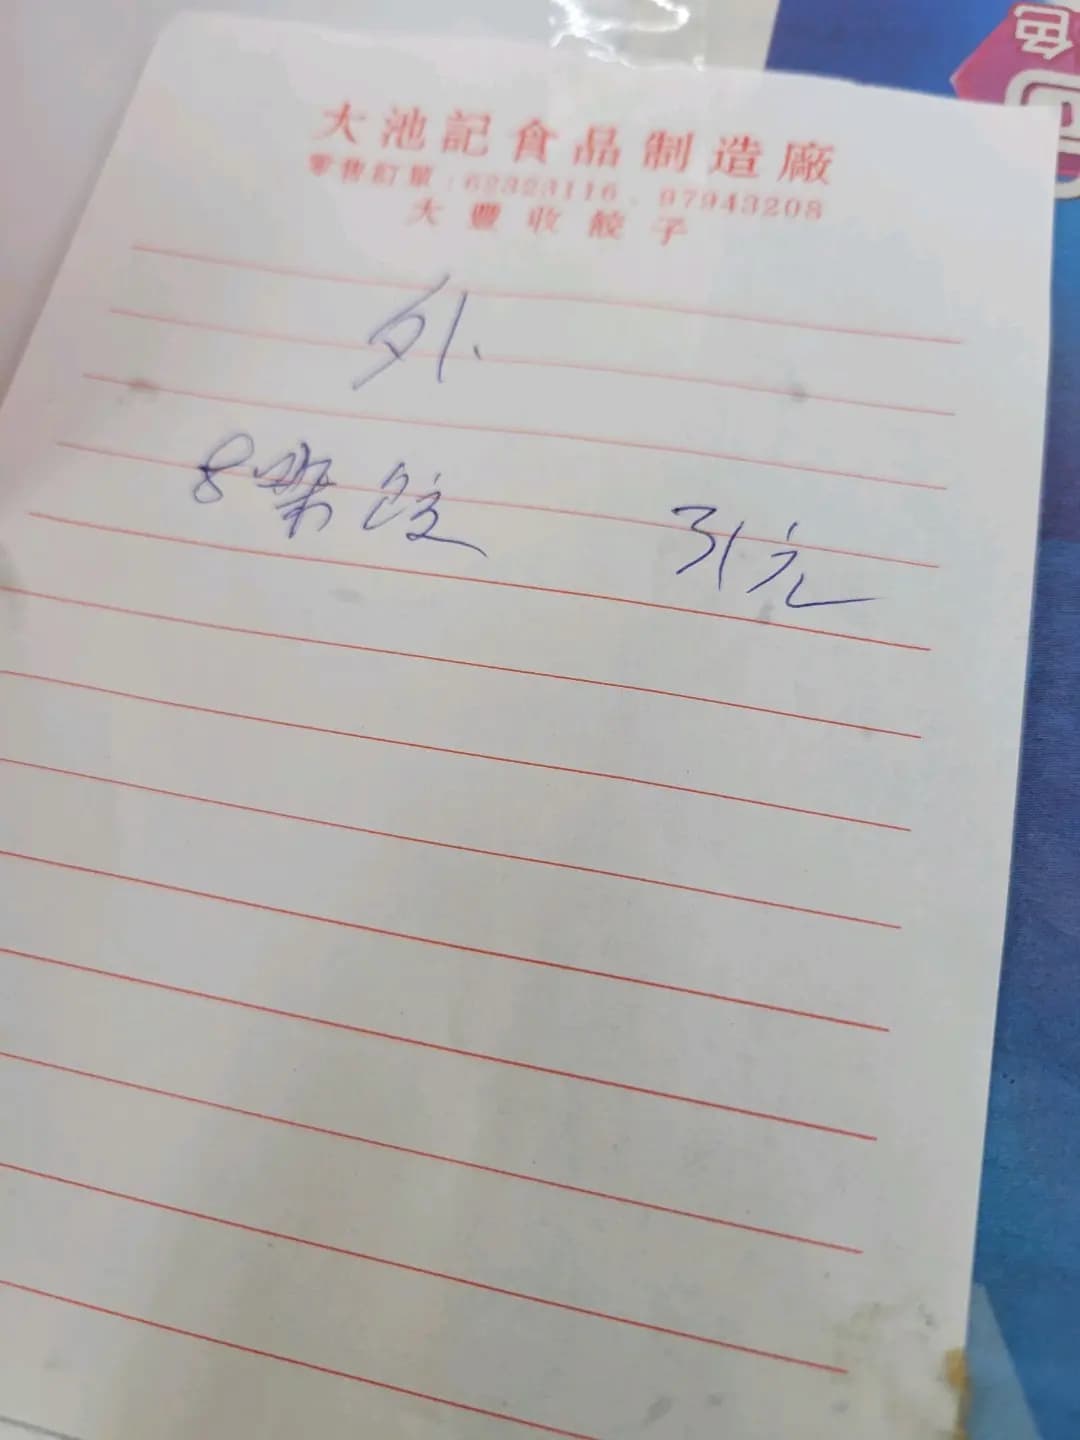 大池記食品制造廠
零售訂單：62323116．97943208
大豐收餃子
外
8 餃 31元
色